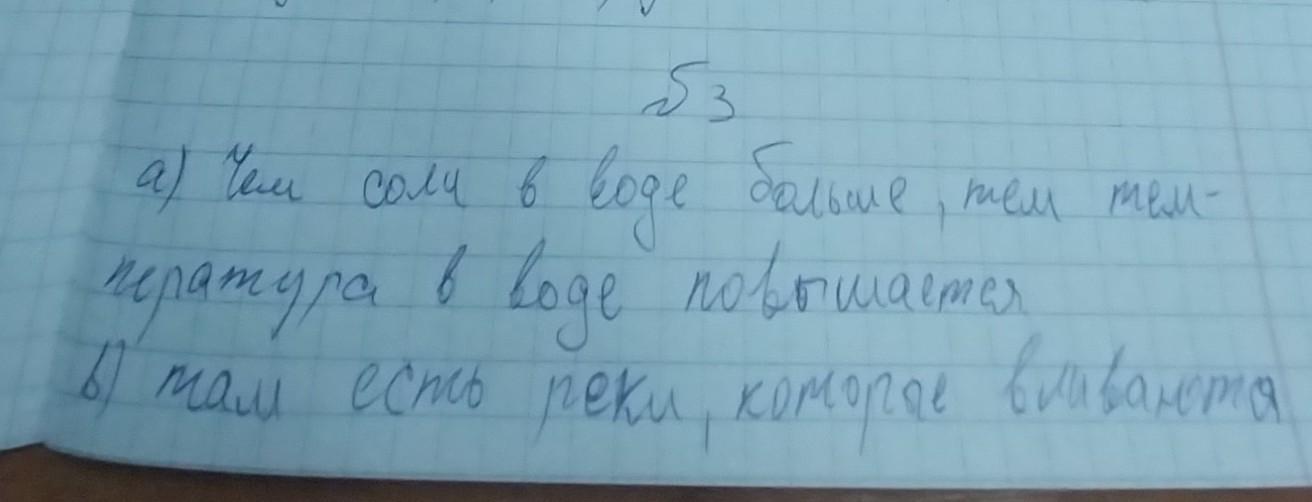 №3
а) Чем соли в воде больше, тем тем-
пература в воде повышается
b) там есть реки, которые вливаются